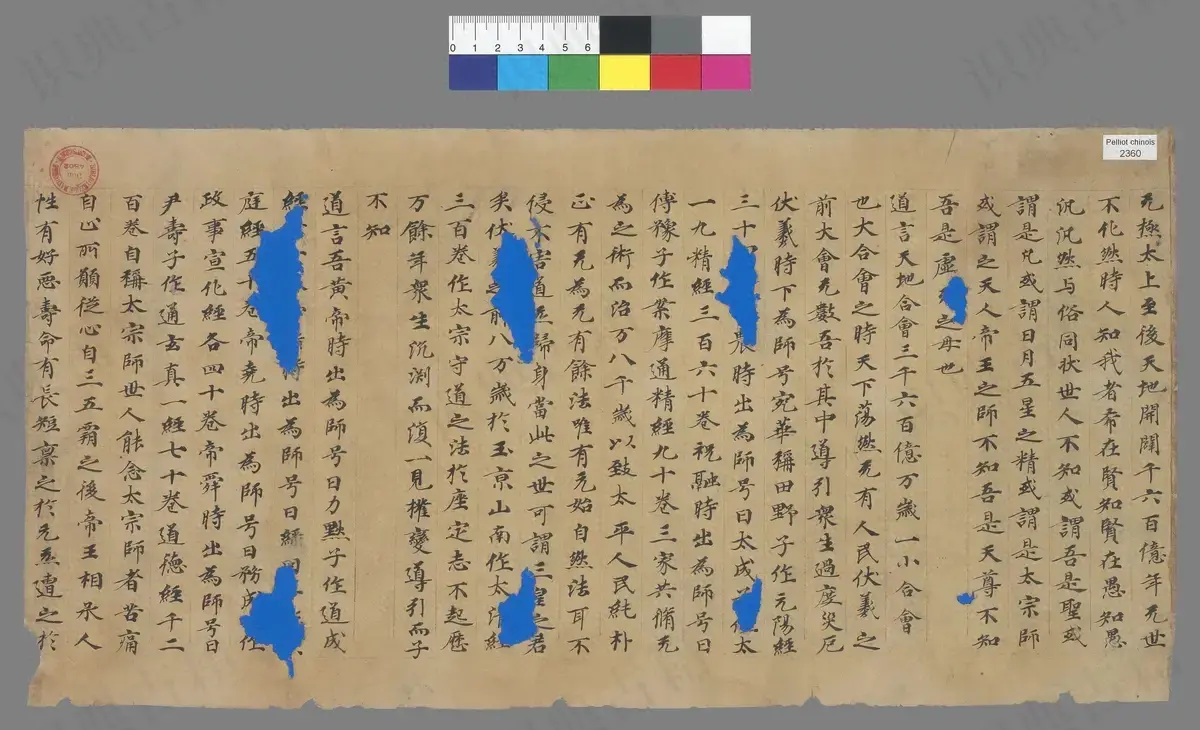 无極太上至後天地開闢千六百億年无世
不化然時人知我者希在賢知賢在愚知愚
汎汎然与俗同状世人不知或謂吾是聖或
謂是凡或謂日月五星之精或謂是太宗師
或謂之天人帝王之師不知吾是天尊不知
吾是虚之母也
道言天地合會三千六百億万歲一小合會
也大合會之時天下蕩然无有人民伏羲之
前大會无數吾於其中導引衆生過度災厄
伏羲時下為師号宛華稱田野子作元陽經
三十農時出為師号曰太成太
一九精經三百六十卷祝融時出為師号曰
傅豫子作案摩通精經九十卷三家共脩无
為之術而治万八千歲以致太平人民純朴
正有无為无有餘法唯有无始自然法耳不
侵不害道並歸身當此之世可謂三皇之君
矣伏之前八万歲於玉京山南作太清經
三百卷作太宗守道之法於座定志不起歷
万餘年衆生沉淵而須一見權變導引而子
不知
道言吾黄帝時出為師号曰力默子作道成
經時出為師号曰緑圖
庭經五十卷帝堯時出為師号曰務成作
政事宣化經各四十卷帝舜時出為師号曰
尹壽子作通玄真一經七十卷道德經千二
百卷自稱太宗師世人能念太宗師者苦痛
自止所願從心自三五霸之後帝王相承人
性有好惡壽命有長短稟之於元氣遭之於
Pelliot chinois
2360
0 1 2 3 4 5 6